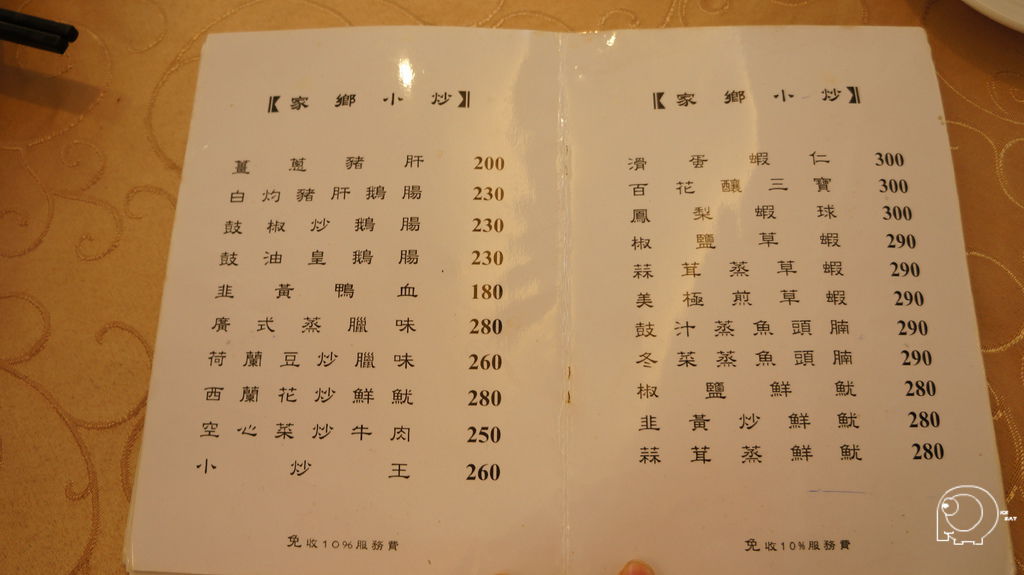 【家鄉小炒】
薑蔥豬肝 200
白灼豬肝鵝腸 230
鼓椒炒鵝腸 230
鼓油皇鵝腸 230
韭黃鴨血 180
廣式蒸臘味 280
荷蘭豆炒臘味 260
西蘭花炒鮮魷 280
空心菜炒牛肉 250
小炒王 260
免收10%服務費
【家鄉小炒】
滑蛋蝦仁 300
百花釀三寶 300
鳳梨蝦球 300
椒鹽草蝦 290
蒜茸蒸草蝦 290
美極煎草蝦 290
鼓汁蒸魚頭腩 290
冬菜蒸魚頭腩 290
椒鹽鮮魷 280
韭黃炒鮮魷 280
蒜茸蒸鮮魷 280
免收10%服務費